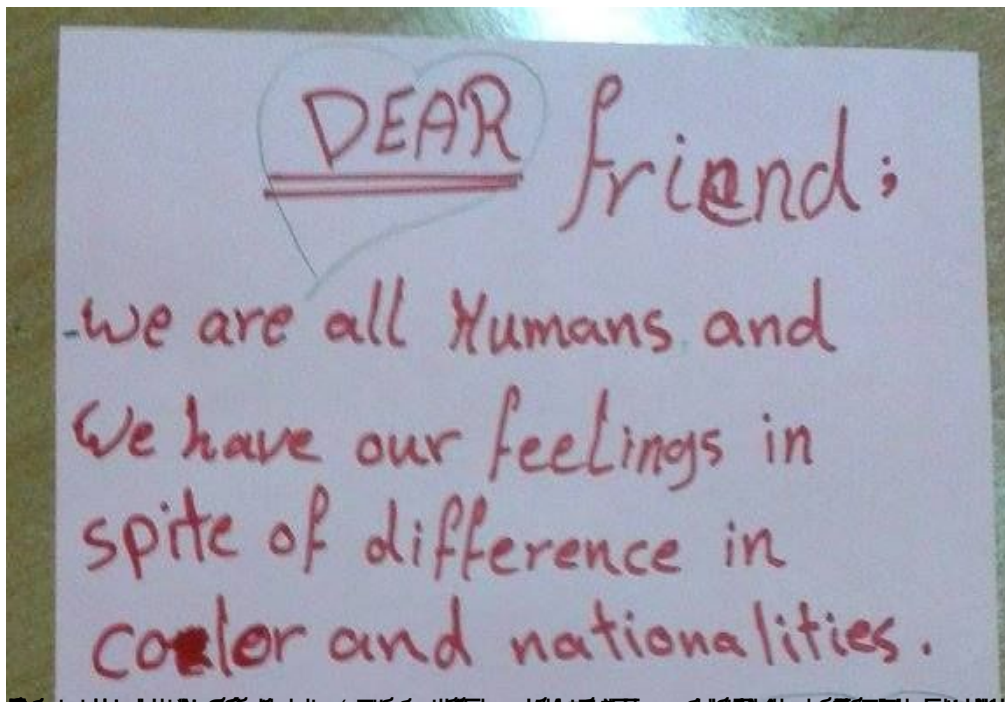 DEAR friend;
-we are all Humans and
We have our feelings in
spite of difference in
color and nationalities.